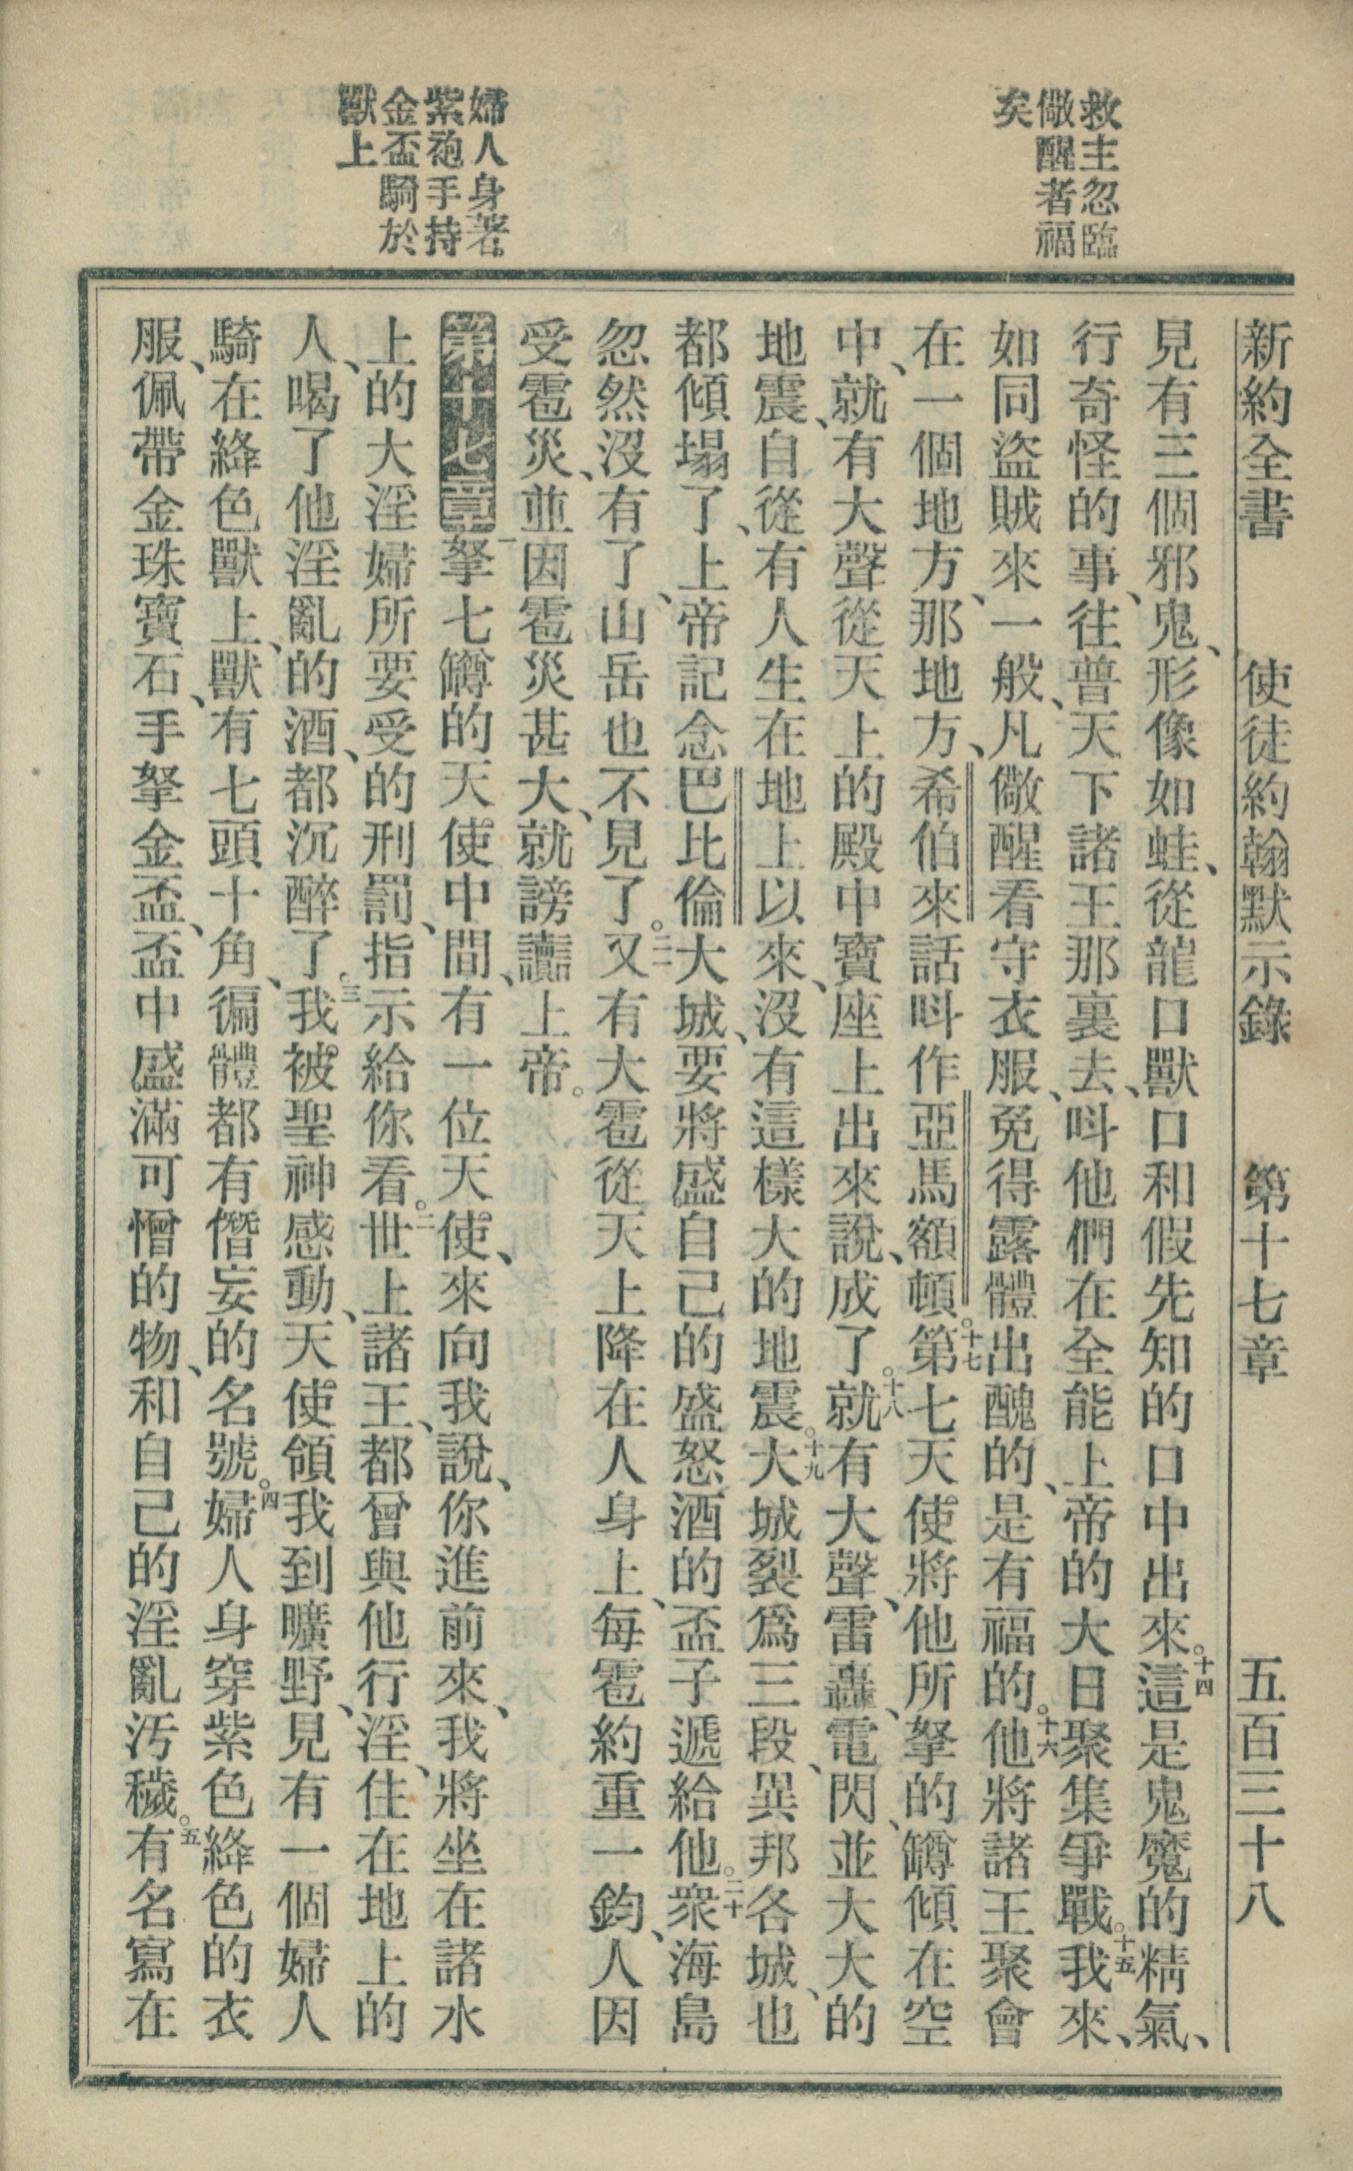 救主忽臨
儆醒者福
矣
婦人身著
紫袍手持
金盃騎於
獸上
新約全書 使徒約翰默示錄 第十七章 五百三十八
見有三個邪鬼、形像如蛙、從龍口獸口和假先知的口中出來。十四這是鬼魔的精氣、
行奇怪的事、往普天下諸王那裏去、呌他們在全能上帝的大日聚集爭戰。十五我來、
如同盜賊來一般、凡儆醒看守衣服、免得露體出醜的、是有福的。十六他將諸王聚會
在一個地方、那地方、希伯來話呌作亞馬額頓。十七第七天使將他所拏的罇傾在空
中、就有大聲從天上的殿中寶座上出來說、成了。十八就有大聲、雷轟、電閃、並大大的
地震、自從有人生在地上以來、沒有這樣大的地震。十九大城裂爲三段、異邦各城、也
都傾塌了、上帝記念巴比倫大城、要將盛自己的盛怒酒的盃子遞給他。二十衆海島
忽然沒有了、山岳也不見了。二一又有大雹從天上降在人身上、每雹約重一鈞、人因
受雹災、並因雹災甚大、就謗讟上帝。
第十七章一拏七罇的天使中間、有一位天使、來向我說、你進前來、我將坐在諸水
上的大淫婦所要受的刑罰、指示給你看。二世上諸王、都曾與他行淫、住在地上的
人、喝了他淫亂的酒、都沉醉了。三我被聖神感動、天使領我到曠野、見有一個婦人
騎在絳色獸上、獸有七頭十角、徧體都有僭妄的名號。四婦人身穿紫色絳色的衣
服、佩帶金珠寶石、手拏金盃、盃中盛滿可憎的物、和自己的淫亂汚穢。五有名寫在